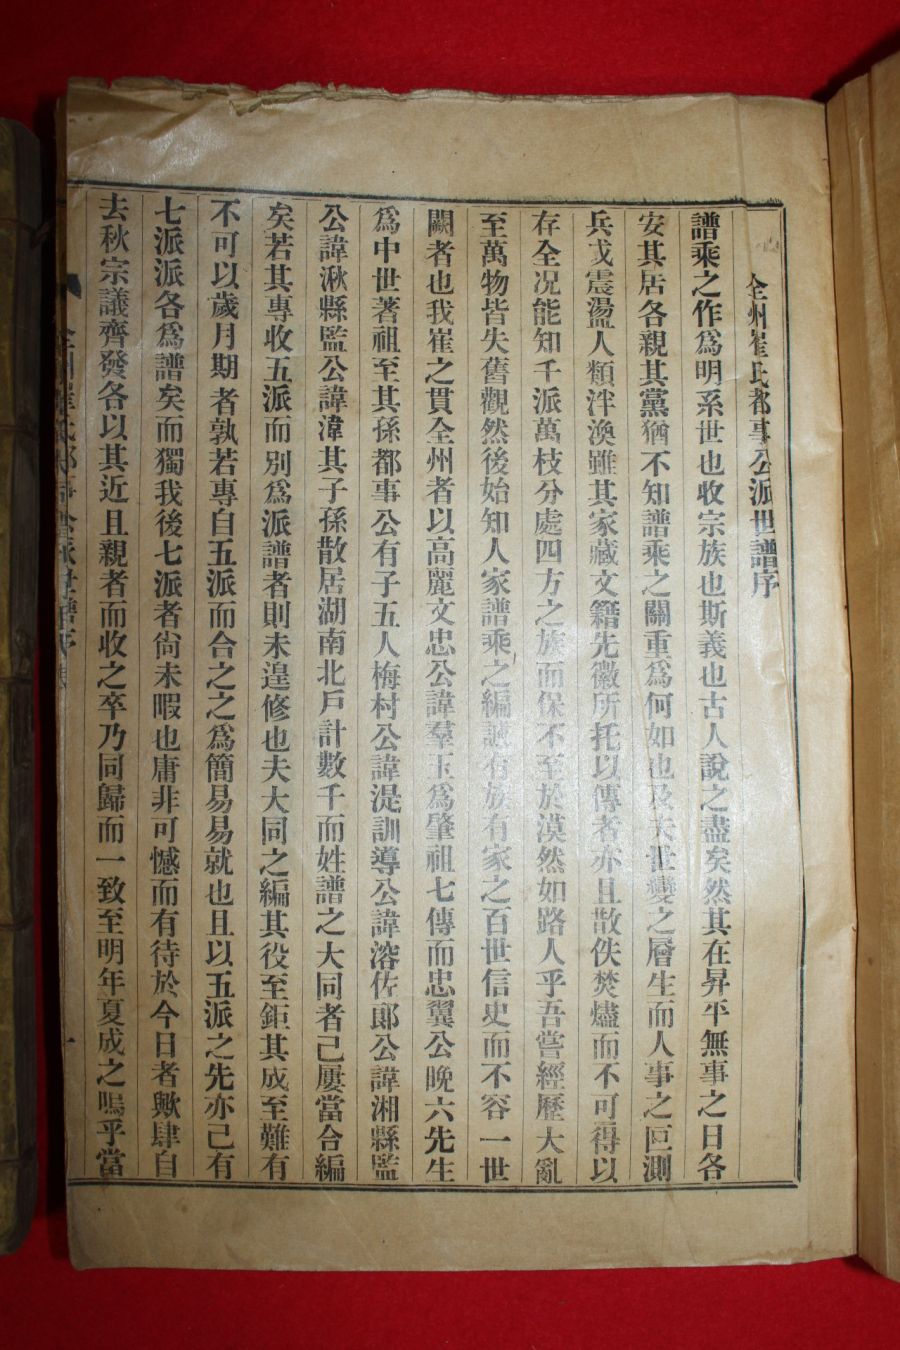 全州崔氏都事公派世譜序
譜乘之作爲明系世也收宗族也斯義也古人說之盡矣然其在昇平無事之日各
安其居各親其黨猶不知譜乘之關重爲何如也及夫世變之層生而人事之叵測
兵戈震盪人類泮渙雖其家藏文籍先徽所托以傳者亦且散佚焚燼而不可得以
存全况能知千派萬枝分處四方之族而保不至於漠然如路人乎吾嘗經歷大亂
至萬物皆失舊觀然後始知人家譜乘之編誠有族有家之百世信史而不容一世
闕者也我崔之貫全州者以高麗文忠公諱羣玉爲肇祖七傳而忠翼公晚六先生
爲中世著祖至其孫都事公有子五人梅村公諱湜訓導公諱溶佐郞公諱湘縣監
公諱湫縣監公諱湋其子孫散居湖南北戶計數千而姓譜之大同者已屢當合編
矣若其專收五派而別爲派譜者則未遑修也夫大同之編其役至鉅其成至難有
不可以歲月期者孰若專自五派而合之之爲簡易易就也且以五派之先亦己有
七派派各爲譜矣而獨我後七派者尙未暇也庸非可憾而有待於今日者歟肆自
去秋宗議齊發各以其近且親者而收之卒乃同歸而一致至明年夏成之嗚乎當
全州崔氏都事公派世譜序
一